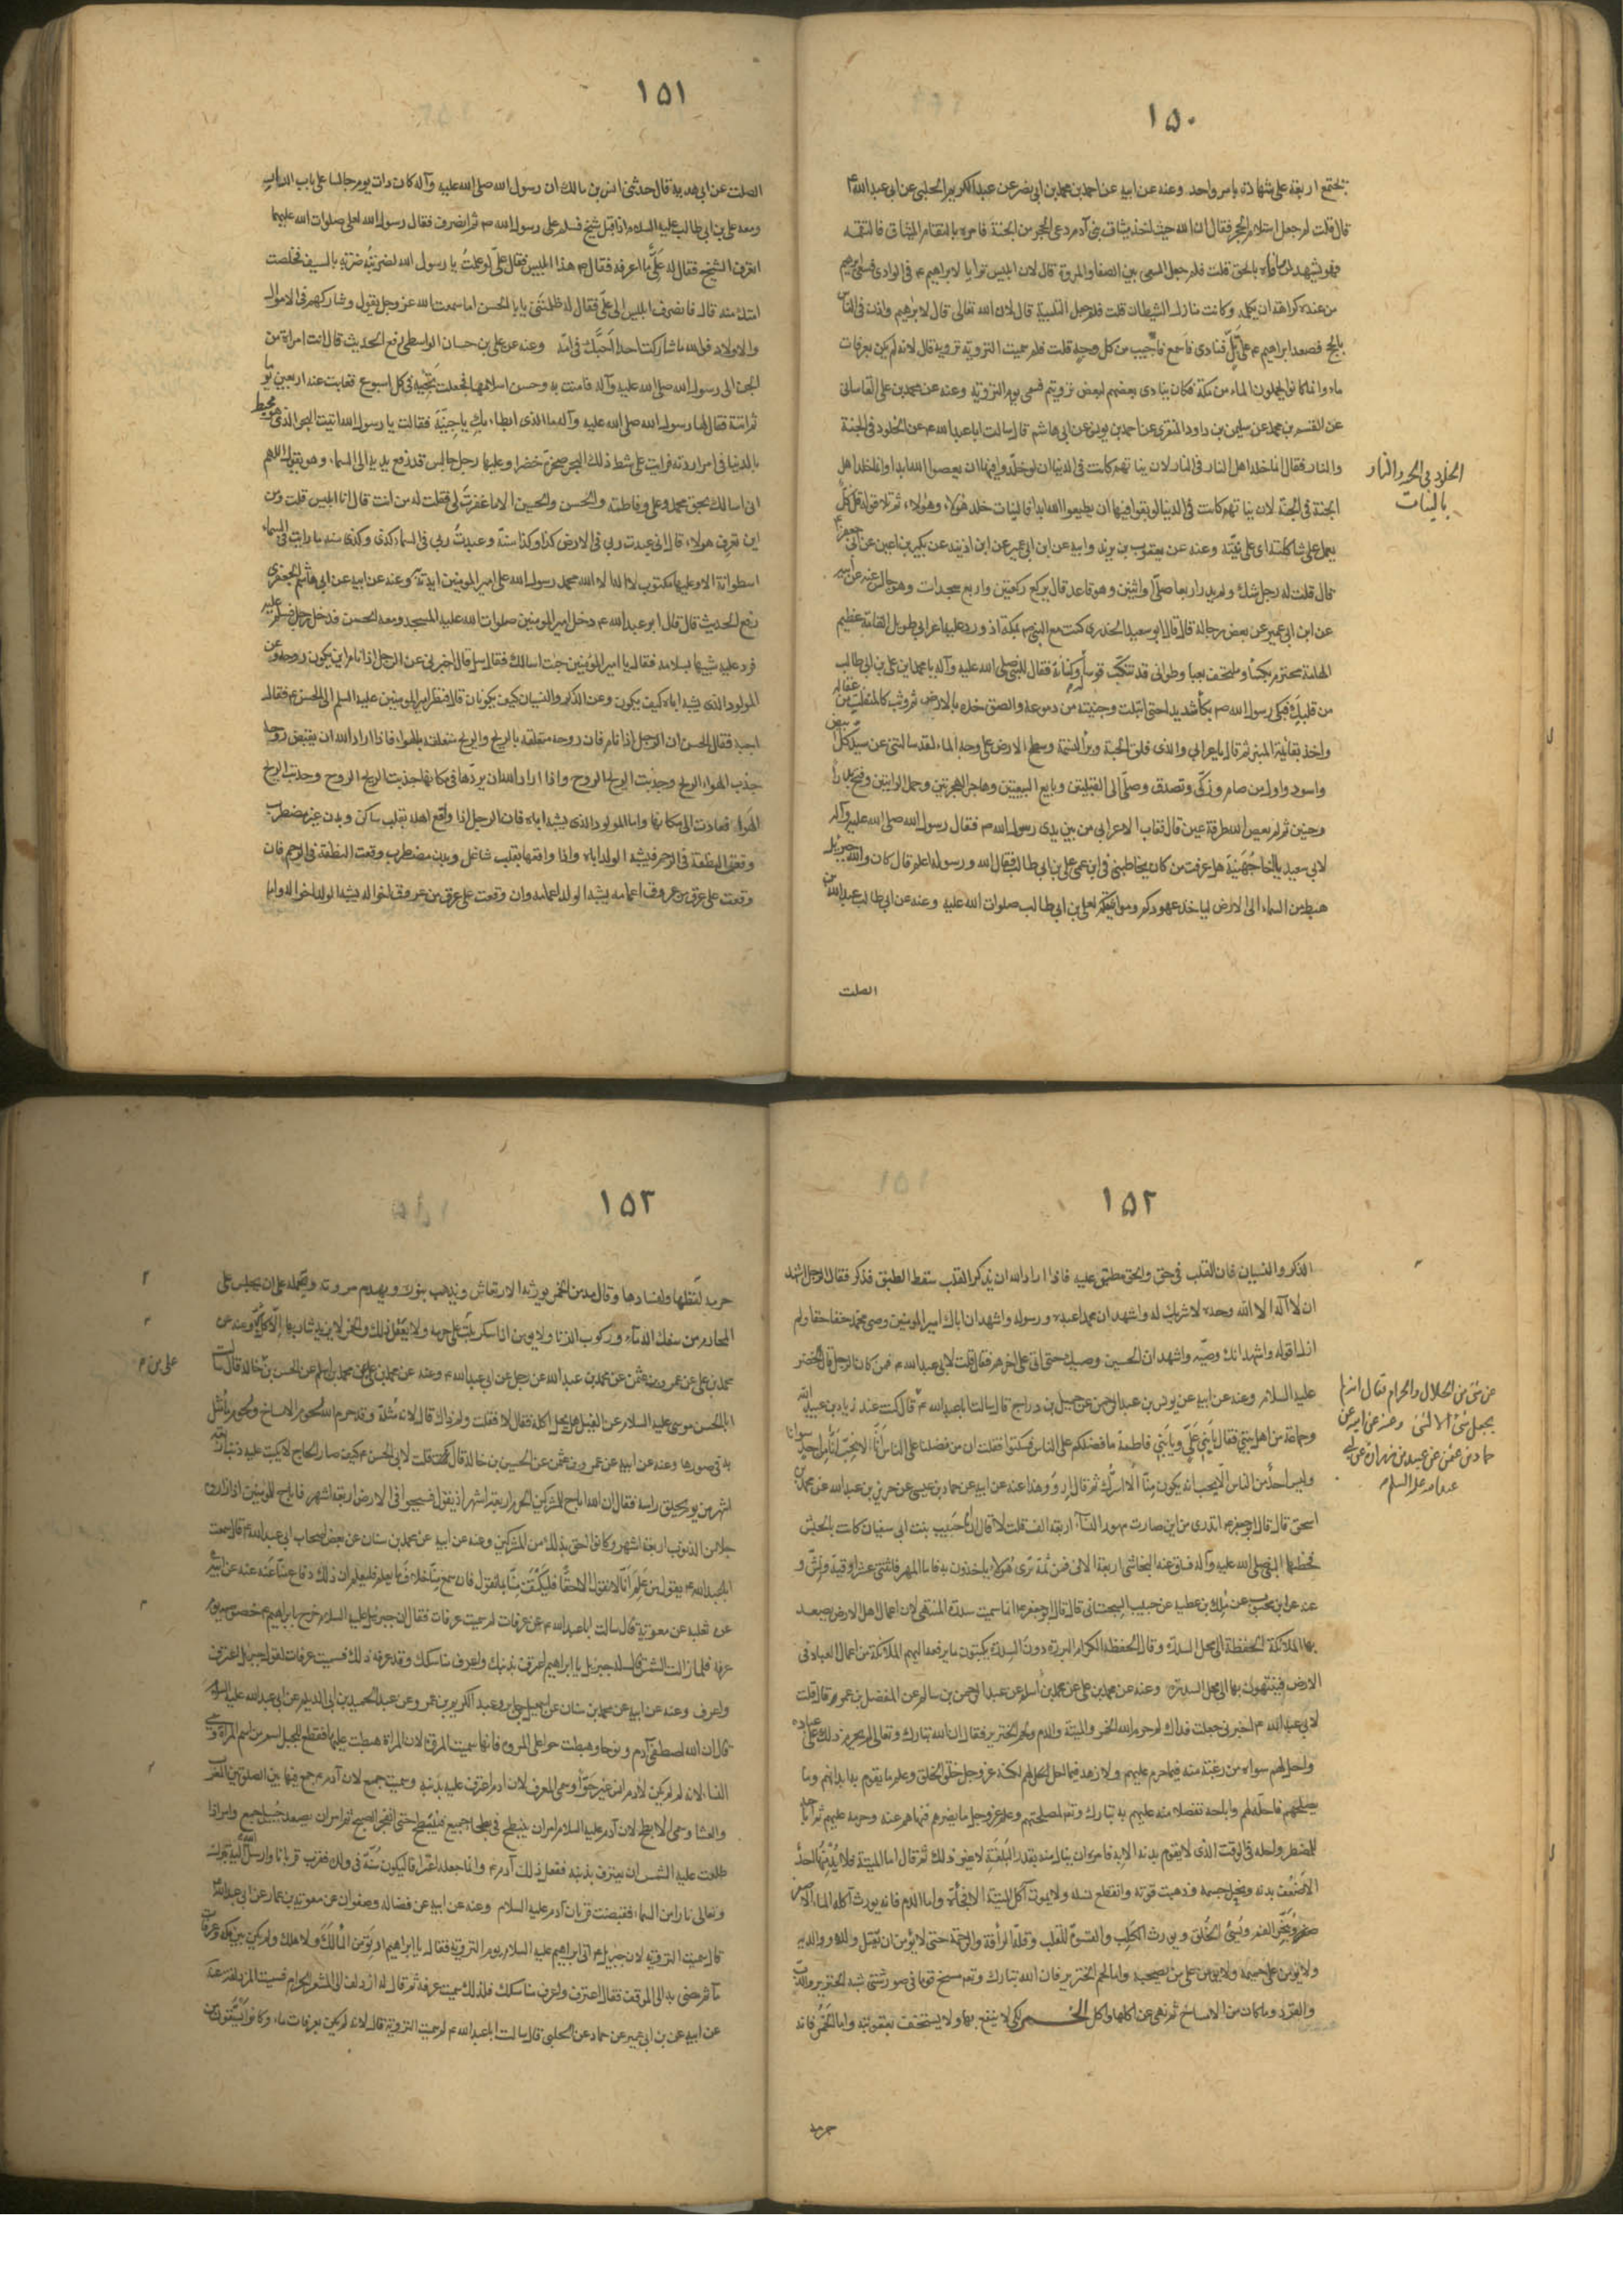 ١٥٠
يجتمع اربعة على شهادة بامر واحد وعنه عن ابيه عن احمد بن محمد بن ابى نصر عن عبد الكريم الحلبى عن ابى عبد الله ع
قال قلت لم جعل استلام الحجر فقال ان الله حيث اخذ ميثاق بنى آدم دعى الحجر من الجنة فامره بالتقام الميثاق فالتقمه
فهو يشهد لمن وافاه بالحق قلت فلم جعل السعى بين الصفا والمروة قال لان ابليس ترايا لابراهيم ع فى الوادى فسعى ابرهيم
من عنده كراهة ان يكلمه وكانت منازل الشيطان قلت فلم جعل التلبية قال لان الله تعالى قال لابرهيم واذن فى الناس
بالحج فصعد ابراهيم ع على تلّ فنادى فاسمع فاجيب من كل وجه قلت فلم سميت التروية تروية قال لانه لم يكن بعرفات
ماء وانما كانوا يحملون الماء من مكة فكان ينادى بعضهم لبعض ترويتم فسمى يوم التروية وعنه عن محمد بن على القاسانى
عن القسم بن محمد عن سليمن بن داود المنقرى عن احمد بن يونس عن ابى هاشم قال سالت ابا عبد الله ع عن الخلود فى الجنة
والنار فقال انما خلد اهل النار فى النار لان نياتهم كانت فى الدنيا ان لو خلدوا فيها ان يعصوا الله ابدا وانما خلد اهل
الجنة فى الجنة لان نياتهم كانت فى الدنيا لو بقوا فيها ان يطيعوا الله ابدا فالنيات خلد هؤلاء وهؤلاء ثم تلا قوله قل كلّ
يعمل على شاكلته اى على نيّته وعنه عن يعقوب بن يزيد وابيه عن ابن ابى عمير عن ابن اذينه عن بكير بن اعين عن ابى جعفر ع
قال قلت له رجل شك ولم يدر اربعا صلّى او اثنين وهو قاعد قال يركع ركعتين واربع سجدات وهو جالس عنه عن ابيه
عن ابن ابى عمير عن بعض رجاله قال قال ابو سعيد الخدرى كنت مع النبى ص بمكة اذ ورد عليه اعرابى طويل القامة عظيم
الهامة محتزم بكساء وملتحف بعباء قطوانى قد تنكّب قوسا وكنانة فقال للنبى صلى الله عليه وآله يا محمد اين على بن ابى طالب
من قلبك فبكى رسول الله ص بكاء شديدا حتى ابتلت وجنتيه من دموعه والصق خده بالارض ثم وثب كالمنفلت من عقاله
واخذ بقائمة المنبر ثم قال يا اعرابى والذى فلق الحبة وبرأ النسمة وسطح الارض على وجه الماء لقد سالتنى عن سيد كلّ ابيض
واسود واول من صام وزكّى وتصدق وصلّى الى القبلتين وبايع البيعتين وهاجر الهجرتين وحمل الرايتين وفتح بدرا
وحنين ثم لم يعص الله طرفة عين قال فغاب الاعرابى من بين يدى رسول الله ص فقال رسول الله صلى الله عليه وآله
لابى سعيد يا اخا جُهَينة هل عرفت من كان يخاطبنى فى ابن عمى على بن ابى طالب فقال الله ورسوله اعلم قال كان والله جبريل
هبط من السماء الى الارض لياخذ عهودكم ومواثيقكم لعلى بن ابى طالب صلوات الله عليه وعنه عن ابى طالب عبد الله بن
الصلت
الخلود فى الجنة والنار
بالنيات
١٥١
الصلت عن ابى هدية قال حدثنى انس بن مالك ان رسول الله صلى الله عليه وآله كان ذات يوم جالسا على باب الدار
ومعه على بن ابى طالب عليه السلام اذ اقبل شيخ فسلم على رسول الله ص ثم انصرف فقال رسول الله لعلى صلوات الله عليهما
اتعرف الشيخ فقال له علىّ ما اعرفه فقال ص هذا ابليس فقال علىّ لو علمتُ يا رسول الله لضربتُه ضربة بالسيف فخلصت
امتك منه قال فانصرف ابليس الى علىّ فقال له ظلمتنى يابا الحسن اما سمعت الله عز وجل يقول وشاركهم فى الاموال
والاولاد فوالله ما شاركت احدا احبّك فى امّه وعنه عن على بن حسان الواسطى رفع الحديث قال اتت امراة من
الجن الى رسول الله صلى الله عليه وآله فآمنت به وحسن اسلامها فجعلت تجيئه فى كل اسبوع فغابت عنه اربعين يوما
ثم اتته فقال لها رسول الله صلى الله عليه وآله ما الذى ابطاء بك يا جنّيّة فقالت يا رسول الله اتيت البحر الذى هو محيط
بالدنيا فى امر اردته فرايت على شط ذلك البحر صخرة خضرا وعليها رجل جالس قد رفع يديه الى السماء وهو يقول اللهم
انى اسالك بحق محمد وعلى وفاطمة والحسن والحسين الا ما غفرتَ لى فقلت له من انت قال انا ابليس فقلت ومن
اين تعرف هولاء قال انى عبدت ربى فى الارض كذا وكذا سنة وعبدتُ ربى فى السماء كذى وكذى سنه ما رايت فى السماء
اسطوانة الا وعليها مكتوب لا اله الا الله محمد رسول الله على امير المومنين ايدته به وعنه عن ابيه عن ابى هاشم الجعفرى
رفع الحديث قال قال ابو عبد الله ع دخل امير المومنين صلوات الله عليه المسجد ومعه الحسن فدخل رجل فسلم عليه
فرد عليه شبيها بسلامه فقال يا امير المؤمنين جئت اسالك فقال سل قال اخبرنى عن الرجل اذا نام اين يكون روحه وعن
المولود الذى يشبه اباه كيف يكون وعن الذكر والنسيان كيف يكونان قال فنظر امير المومنين عليه السلم الى الحسن ع فقال
اجبه فقال الحسن ان الرجل اذا نام فان روحه متعلقة بالريح والريح متعلقة بالهواء فاذا اراد الله ان يقبض روحه
جذب الهواء الريح وجذبت الريح الروح واذا اراد الله ان يردّها فى مكانها جذبت الريح الروح وجذبت الريح
الهواء فعادت الى مكانها واما المولود الذى يشبه اباه فان الرجل اذا واقع اهله بقلب ساكن وبدن غير مضطرب
وقعت النطفة فى الرحم فيشبه الولد اباه واذا واقعها بقلب شاغل وبدن مضطرب وقعت النطفة فى الرحم فان
وقعت على عرق من عروق اعمامه يشبه الولد اعمامه وان وقعت على عرق من عروق اخواله يشبه الولد اخواله واما
١٥٢
الذكر والنسيان فان القلب فى حق والحق مطبق عليه فاذا اراد الله ان يذكر القلب سقط الطبق فذكر فقال الرجل اشهد
ان لا آله الا الله وحده لا شريك له واشهد ان محمدا عبده ورسوله واشهد ان اباك امير المومنين وصى محمد حقا حقا ولم
ازل اقوله واشهد انك وصيّه واشهد ان الحسين وصيك حتى اتى على اخرهم فقال قلت لابى عبد الله ع فمن كان الرجل قال الخضر
عليه السلام وعنه عن ابيه عن يونس بن عبد الرحمن عن جميل بن دراج قال سالت ابا عبد الله ع قال كنت عند زياد بن عبيد الله
وجماعة من اهل بيتى فقال يا بنى علىّ ويا بنى فاطمة ما فضلكم على الناس فسكتوا فقلت ان من فضلنا على الناس انّا لا نحبّ انّا من احد سوانا
وليس احدٌ من الناس الّا يحب انه يكون منّا الا اشرك ثم قال اِروُوا هذا عنه عن ابيه عن حماد بن عيسى عن حريز بن عبد الله عن محمد بن
اسحق قال قال ابو جعفر ع اتدرى من اين صارت مهور النساء اربعة الف قلت لا قال ان ام حبيب بنت ابى سفيان كانت بالحبش
فخطبها النبى صلى الله عليه وآله فساق عنه النجاشى اربعة الاف فمن ثمة ترى هؤلاء ياخذون به فاما المهر فاثنتى عشر اوقية ونشّ و
عنه عن ابن محبوب عن ملك بن عطيه عن حبيب السجستانى قال قال ابو جعفر ع انما سميت سدرة المنتهى لان اعمال اهل الارض يصعد
بها الملائكة الحفظة الى محل السدرة وقال الحفظه الكرام البررة دون السدرة يكتبون ما يرفعه اليهم الملائكة من اعمال العباد فى
الارض فينتهون بها الى محل السدرة وعنه عن محمد بن على عن محمد بن اسلم عن عبد الرحمن بن سالم عن المفضل بن عمر قال قلت
لابى عبد الله ع اخبرنى جعلت فداك لم حرم الله الخمر والميتة والدم ولحم الخنزير فقال ان الله تبارك وتعالى لم يحرم ذلك على عباده
واحل لهم سواه من رغبة منه فيما حرم عليهم ولا زهد فيما احل لهم لكنه عز وجل خلق الخلق وعلم ما يقوم به ابدانهم وما
يصلحهم فاحله لهم واباحه تفضلا منه عليهم به تبارك وتعالى لمصلحتهم وعلم عز وجل ما يضرهم فنهاهم عنه وحرمه عليهم ثم اباحه
للمضطر واحله فى الوقت الذى لا يقوم بدنه الا به فامره ان ينال منه بقدر البُلغة لا غير ذلك ثم قال اما الميتة فلا يُدْمِنُها احدٌ
الا ضعُف بدنه ونحل جسمه وذهبت قوته وانقطع نسله ولا يموت آكل الميتة الا فجأة واما الدم فانه يورث آكله الماء الاصفر
ويبخّر الفم ويُسئ الخلق ويورث الكلب والقسوة للقلب وقلة الرأفة والرحمة حتى لا يؤمن ان يقتل ولده ووالديه
ولا يؤمن على حميمه ولا يؤمن على من يصحبه واما لحم الخنزير فان الله تبارك وتعم مسخ قوما فى صور شتى شبه الخنزير والدب
والقرد وما كان من الامساخ ثم نهى عن اكلها واكل الخـــمر لكى لا ينتفع بها ولا يستخف بعقوبته واما الخمر فانه
حرمه
عن شئ من الحلال والحرام فقال انه لم
يجعل شئ الا لشئ وعنه عن ابيه عن
حماد بن عثمن عن عبيد بن زرارة عن ابى
عبد الله عليه السلم
١٥٣
حرمه لفعلها وفسادها وقال مدمن الخمر يورثه الارتعاش ويذهب بنوره ويهدم مروته ويحمله على ان يجلس على
المحارم من سفك الدماء وركوب الزنا ولا يومن اذا سكر ان يثب على حرمه ولا يعقل ذلك والخمر لا يزيد شاربها الّا كلّ شرّ وعنه عن
محمد بن على عن عمرو بن عثمن عن محمد بن عبد الله عن رجل عن ابى عبد الله ع وعنه عن محمد بن على عن محمد بن اسلم عن الحسن بن خالد قال سالت
ابا الحسن موسى عليه السلام عن الفيل هل يحل اكله فقال لا فقلت ولم ذاك قال لانه مُثلة وقد حرم الله لحوم الامساخ ولحم ما يُمثّل
به فى صورها وعنه عن ابيه عن عمرو بن عثمن عن الحسين بن خالد قال قلت لابى الحسن ع كيف صار الحاج لا يكتب عليه ذنب اربعة
اشهر من يوم يحلق راسه فقال ان الله اباح للمشركين الحرم اربعة اشهر اذ يقول فسيحوا فى الارض اربعة اشهر فاباح للمؤمنين اذا زاروه
حلا من الذنوب اربعة اشهر وكانوا احق بذلك من المشركين وعنه عن ابيه عن محمد بن سنان عن بعض اصحاب ابى عبد الله ع قال سمعت
ابا عبد الله ع يقول من علم انّا لا نقول الا حقّا فليكتف منّا بما نقول فان سمع منّا خلاف ما يعلم فليعلم ان ذلك دفاع منّا عنه عنه عن ابيه
عن ثعلبه عن معويه قال سالت ابا عبد الله ع عن عرفات لم سميت عرفات فقال ان جبرئيل عليه السلام خرج بابراهيم ع يوم
عرفة فلما زالت الشمس قال له جبرئيل يا ابراهيم اعترف بذنبك واعرف مناسكك وقد عرفه ذلك فسميت عرفات لقول جبرئيل اعترف
واعرف وعنه عن ابيه عن محمد بن سنان عن اسمعيل بن جابر وعبد الكريم بن عمرو عن عبد الحميد بن ابى الديلم عن ابى عبد الله عليه السلام
قال ان الله اصطفى آدم ونوحا وهبطت حوا على المروه فانها سميت المروة لان المراة هبطت عليها فقطع للجبل اسم من اسم المراة وسمى
النساء لانه لم يكن لآدم انس غير حوّا وسمى المعرف لان ادم اعترف عليه بذنبه وسميت جمع لان آدم ع جمع فيها بين الصلوتين المغرب
والعشا وسمى الابطح لان آدم عليه السلام امر ان ينبطح فى بطحا جميع فانبطح حتى انفجر الصبح ثم امر ان يصعد جبل جمع وامر اذا
طلعت عليه الشمس ان يعترف بذنبه ففعل ذلك آدم ع وانما جعله اعترافا ليكون سُنّة فى ولده فقرب قربانا وارسل الله اليه تبارك
وتعالى نارا من السماء فقبضت قربان آدم عليه السلام وعنه عن ابيه عن فضاله وصفوان عن معويه بن عمار عن ابى عبد الله ع
قال سميت التروية لان جبرئيل ع اتى ابراهيم عليه السلام يوم التروية فقال له يا ابراهيم ارتو من الماء لك ولاهلك ولم يكن بين مكه وعرفات
ماء ثم مضى به الى الموقف فقال اعترف واعرف مناسكك فلذلك سميت عرفة ثم قال له ازدلف الى المشعر الحرام فسميت المزدلفة عنه
عن ابيه عن بن ابى عمير عن حماد عن الحلبى قال سالت ابا عبد الله ع لم سميت التروية قال لانه لم يكن بعرفات ماء وكانوا يستقون من
على بن م